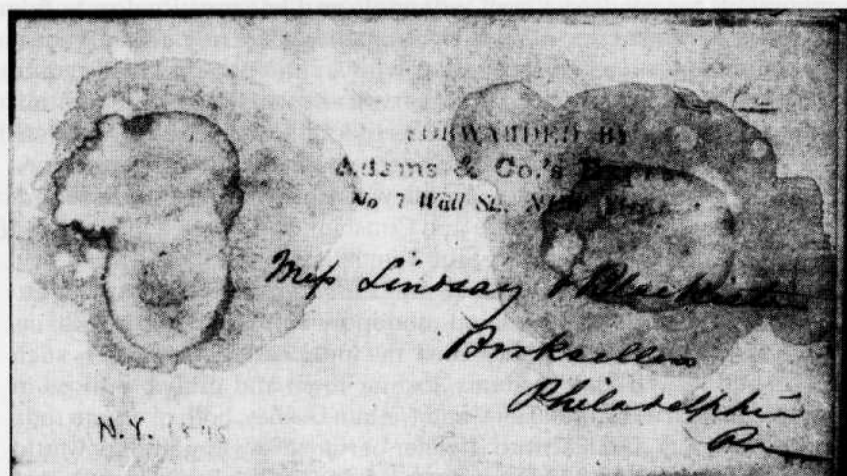 FORWARDED BY
Adams & Co.'s Express
No 7 Wall St., New
Mess Lindsay & Blackiston
Booksellers
Philadelphia
Pa
N.Y. 1845